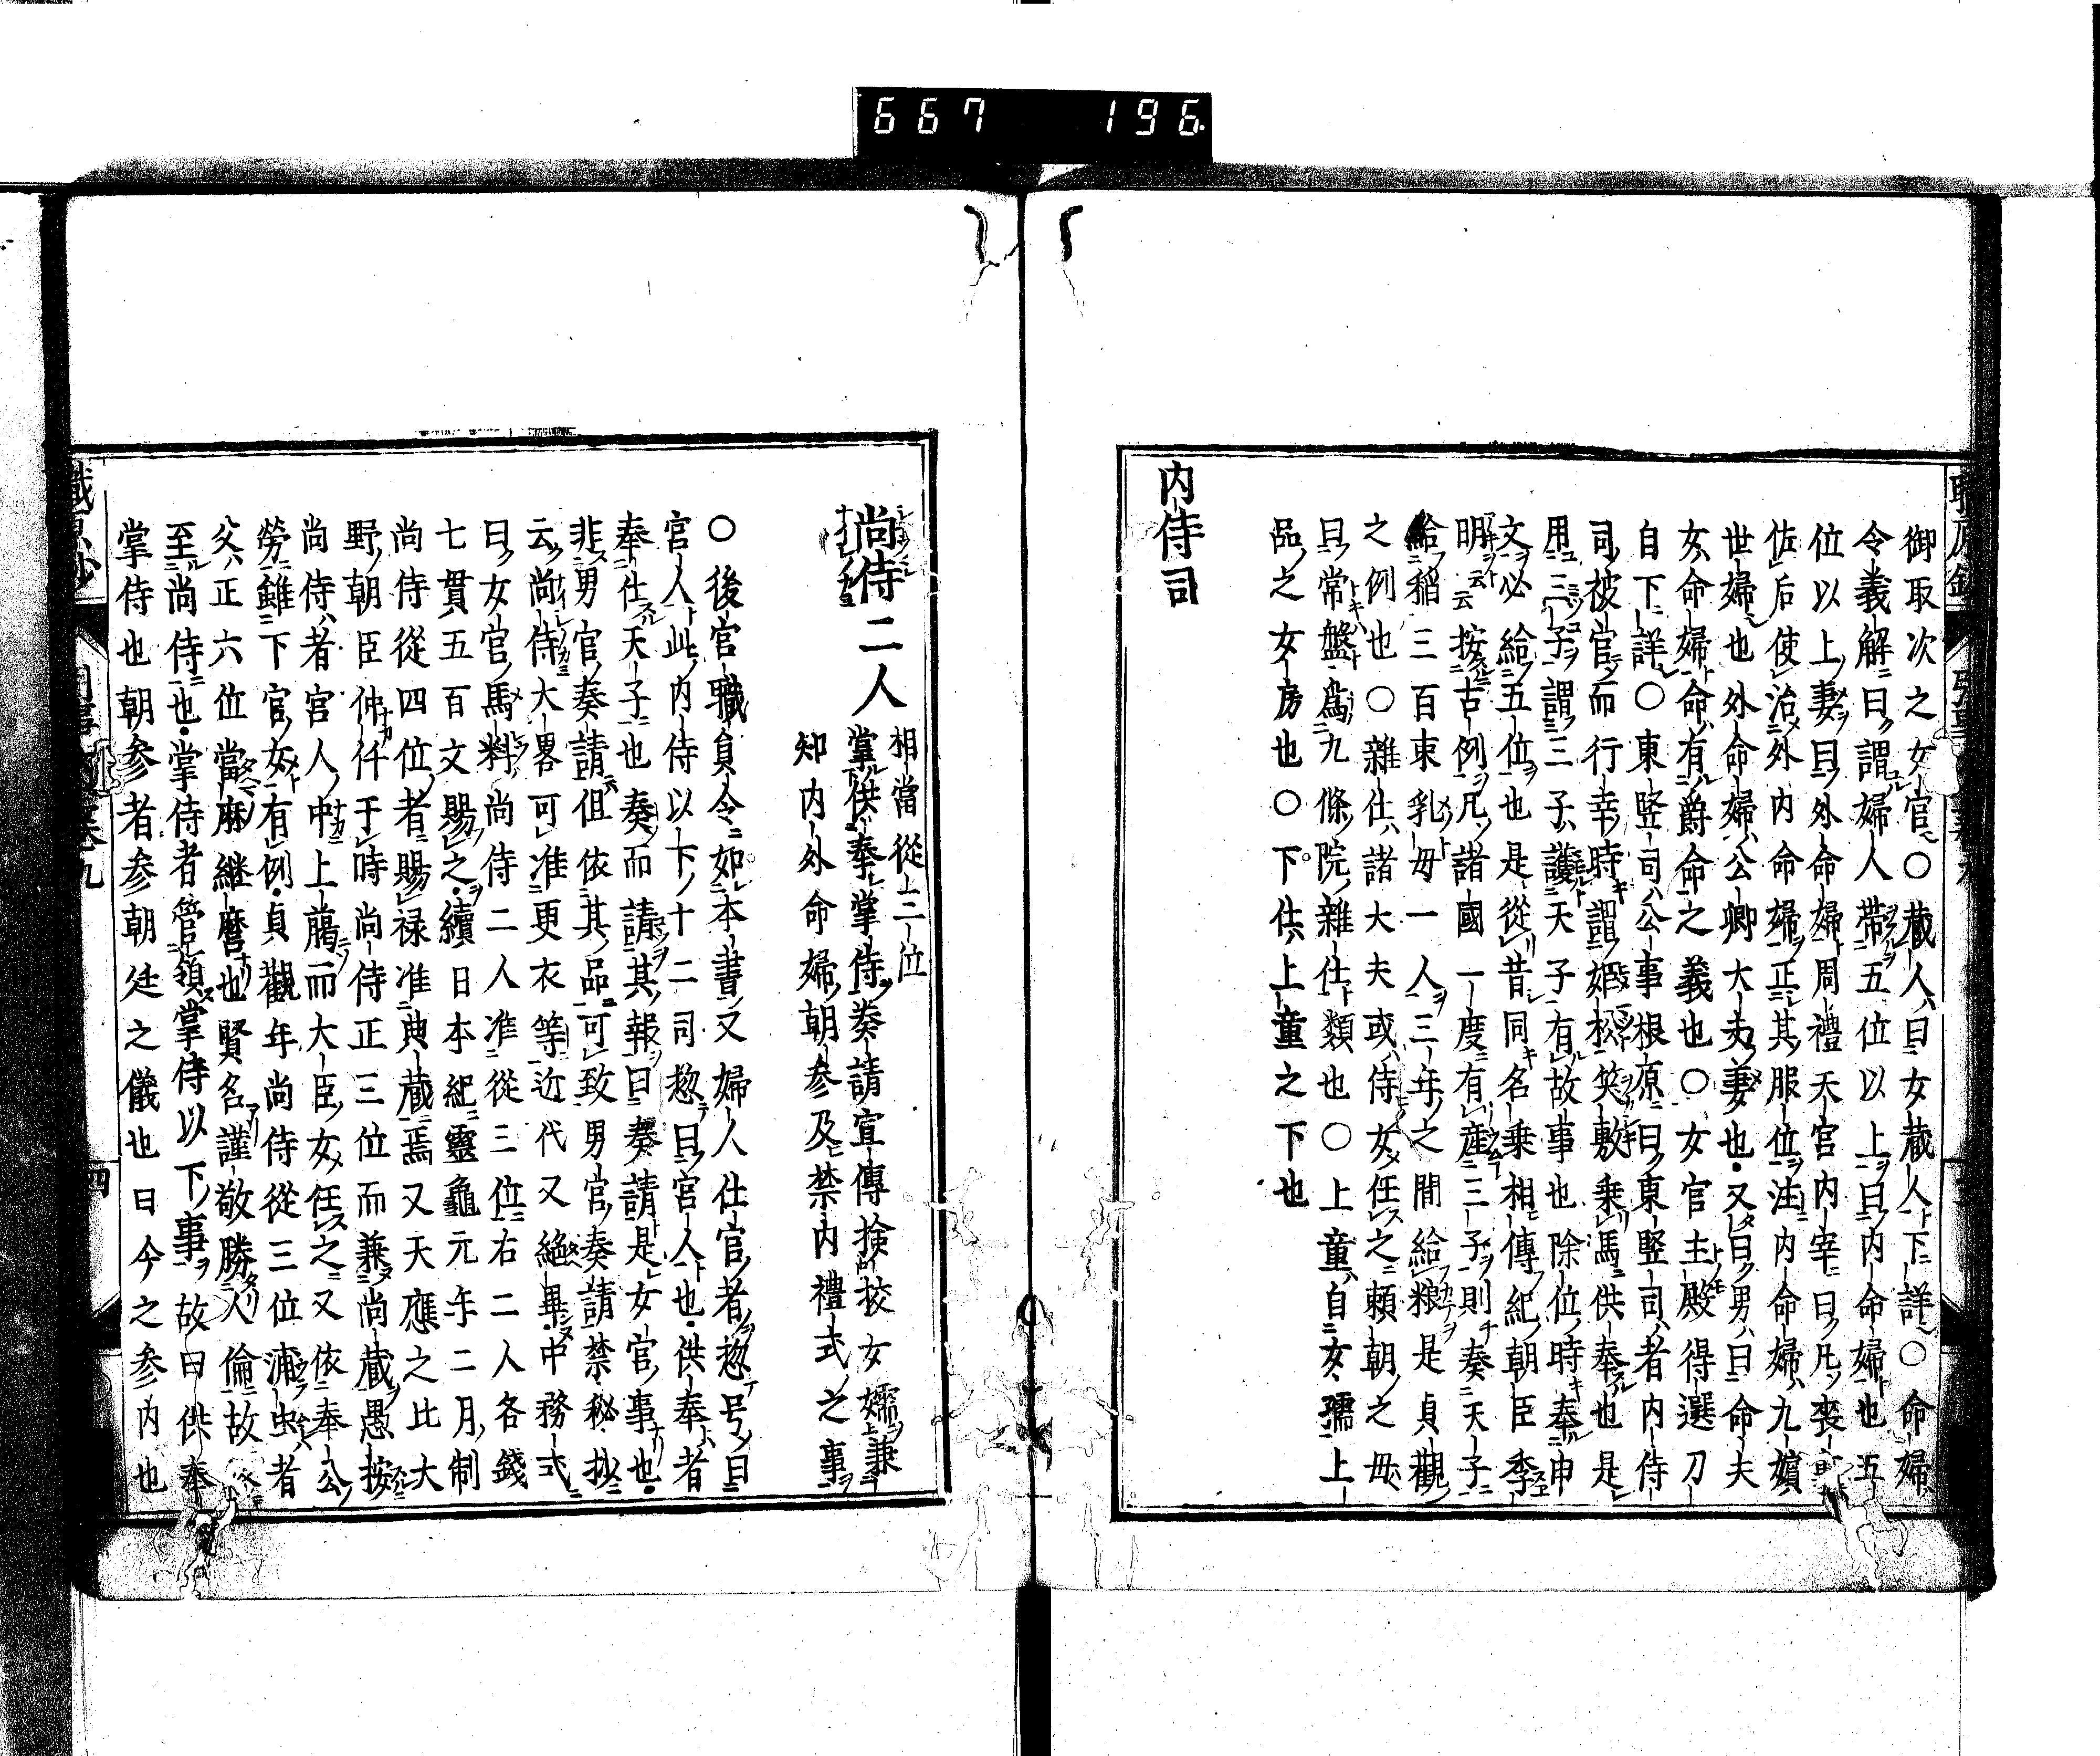 667 196
御取次之女官〇蔵人曰女蔵人下詳〇命婦
令義解曰謂婦人帶五位以上曰内命婦也五
位以上妻曰外命婦周禮天官内宰曰凡喪
佐后使治外内命婦正其服位注内命婦九嬪
世婦也外命婦公卿大夫妻也又曰男曰命夫
女命婦命有爵命之義也〇女官主殿得選刀
自下詳〇東竪司公事根原曰東竪司者内侍
司被官而行幸時謂姫松笑敷乗馬供奉也是
用三子謂三子護天子有故事也除位時奉申
文必給五位也是從昔同名乗相傳紀朝臣季
明云云按古例凡諸國一度有産三子則奏天子
給稲三百束乳母一人三年之間給粮是貞觀
之例也〇雜仕諸大夫或侍女任之頼朝之母
曰常盤爲九條院雜仕類也〇上童自女孺上
品之女房也〇下仕上童之下也
内侍司
尚侍二人
相當從三位
掌供奉掌侍奏請宣傳検校女孺兼
知内外命婦朝参及禁内禮式之事
〇後宮職員令如本書又婦人仕官者惣号曰
官人此内侍以下十二司惣曰宮人也供奉者
奉仕天子也奏而請其報曰奏請是女官事也
非男官奏請但依其品可致男官奏請禁秘抄
云尚侍大畧可准更衣等近代又絶畢中務式
曰女官馬料尚侍二人准從三位右二人各錢
七貫五百文賜之續日本紀靈龜元年二月制
尚侍從四位者賜禄准典蔵焉又天應之比大
野朝臣仲仟于時尚侍正三位而兼尚蔵愚按
尚侍者宮人中上﨟而大臣女任之又依奉公
勞雖下官女有例貞觀年尚侍從三位浦虫者
父正六位當麻継麿也賢名謹敬勝人倫故
至尚侍也掌侍者管領掌侍以下事故曰供奉
掌侍也朝参者参朝廷之儀也曰今之参内也
職原抄
卷九
四